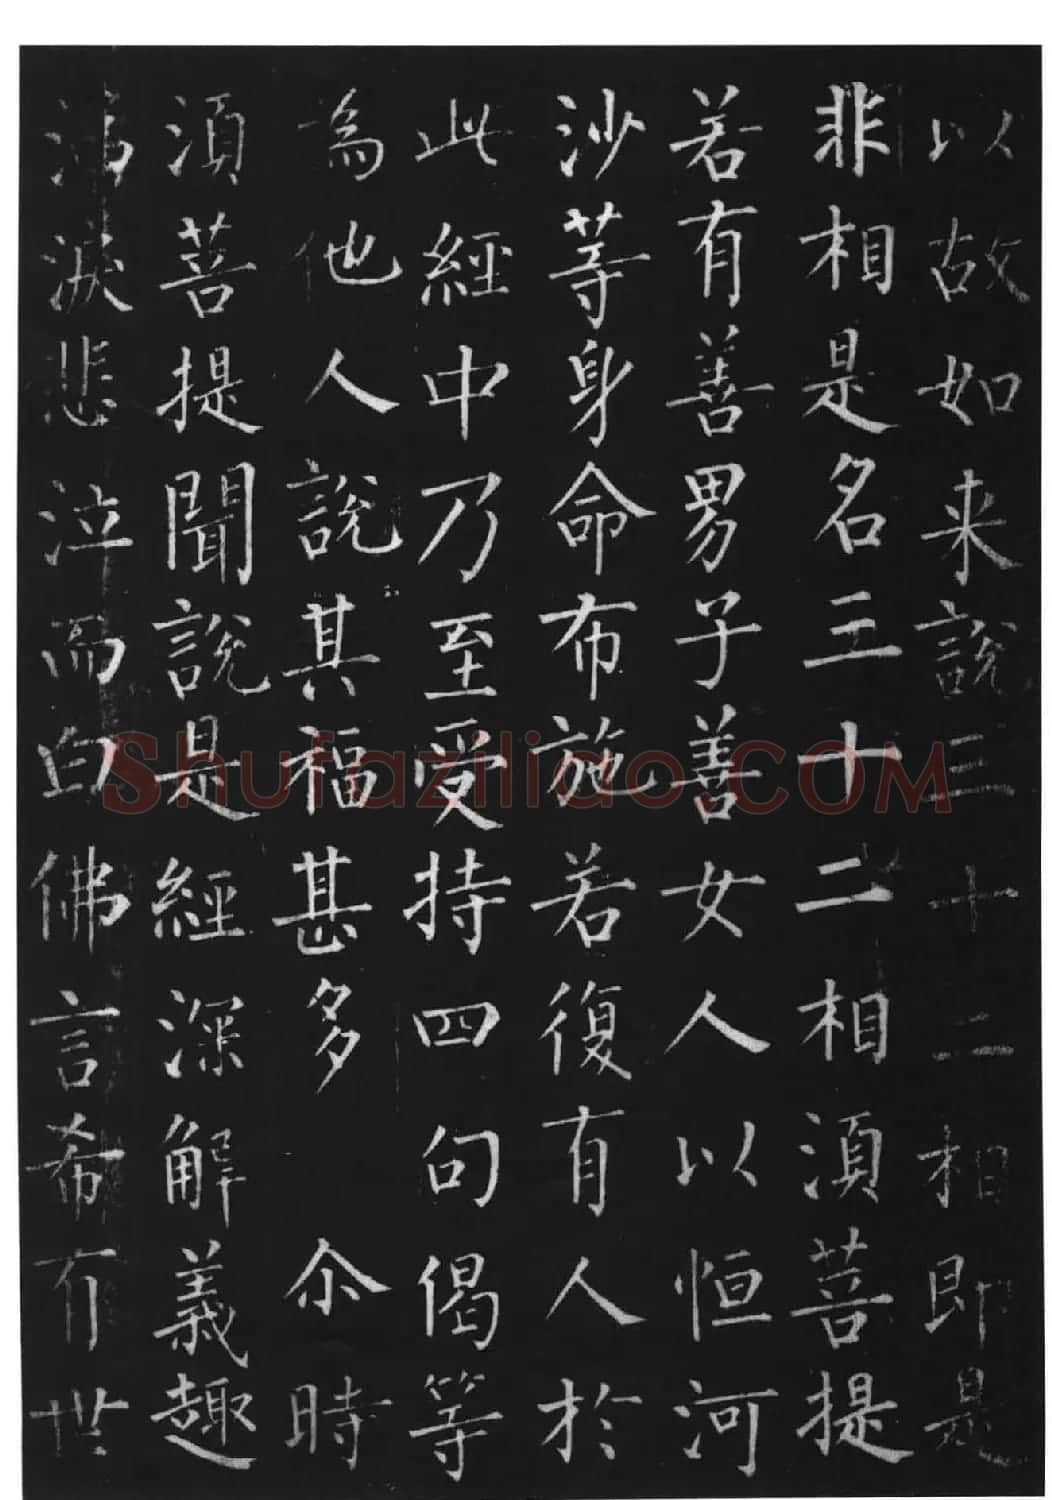 以故如来說三十二相即是
非相是名三十二相湏菩提
若有善男子善女人以恒河
沙等身命布施若復有人於
此經中乃至受持四句偈等
為他人說其福甚多 尒時
湏菩提聞說是經深解義趣
涕淚悲泣而白佛言希有世
Shufaziliao.COM